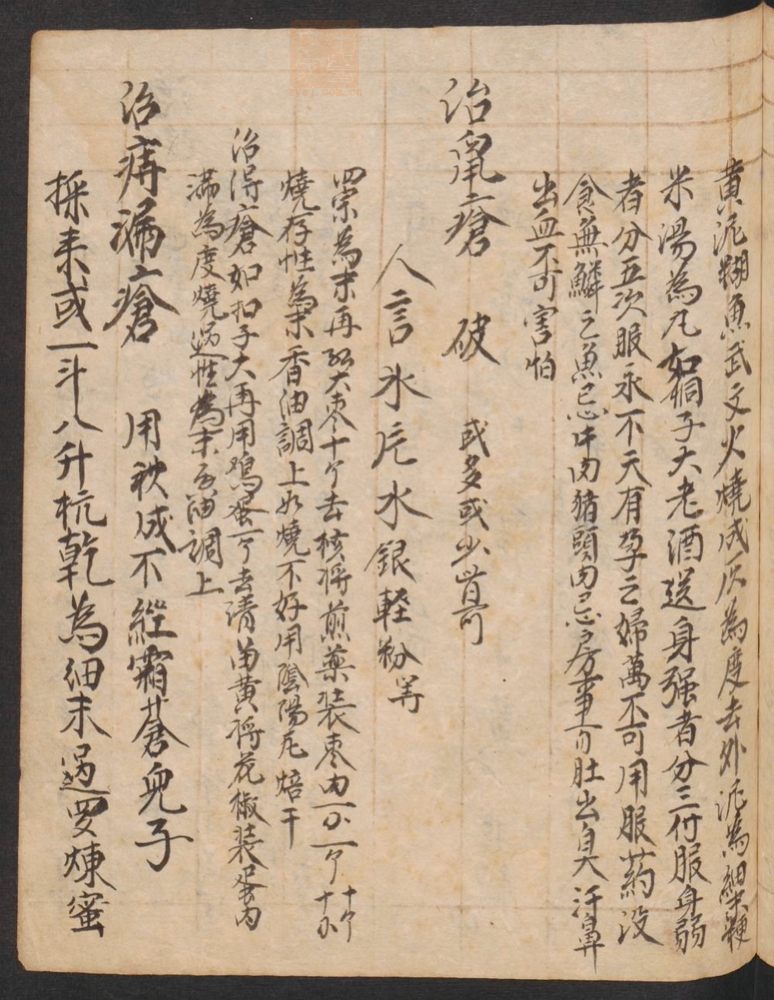 黄泥糊魚武文火燒成灰為度去外泥為細末粳
米湯為凡如桐子大老酒送身强者分三付服身弱
者分五次服永不天有孕之婦萬不可用服葯没
食無鱗之魚忌牛肉猪頭肉忌房事可肚出臭汗鼻
出血不可害怕
治鼠瘡 破 或多或少皆可
人言氷片水銀軽粉等
四宗為末再紅大枣十个去核将煎藥装枣内一个一个十个
燒存性為末香油調上如燒不好用陰陽瓦焙干
治得瘡如扣子大再用鳮蛋一个去清苗黄将花椒装蛋内
满為度燒過性為末香油調上
治痔漏瘡 用秋成不經霜蒼兒子
採来或一斗八升杭乾為細末過罗煉蜜